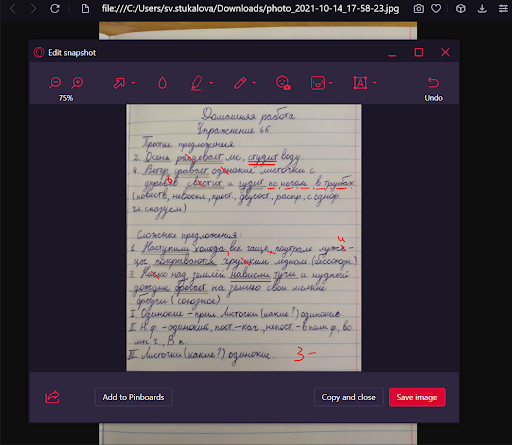 file:///C:/Users/sv.stukalova/Downloads/photo_2021-10-14_17-58-23.jpg
Edit snapshot
75%
Undo
Домашняя работа
Упражнение 66.
Простые предложения:
2. Осень раздевает лес, студит воду.
4. Ветер срывает одинокие листочки с
деревьев свистит и гудит по ночам в трубах
(повеств, невоскл, прост, двусост, распр, с однор
сказуем)
Сложные предложения:
1. Наступили холода, все чаще по утрам
покрываются хрупким ледком (бессоюзн)
3. Низко над землей нависли тучи и нудный
дождик бросает на землю свои мелкие
брызги (союзное)
I Одинокие - прил. Листочки (какие?) одинокие
II Н.ф - одинокий, пост. - кач., непост. - в полн.ф, во
мн ч., В п.
III Листочки (какие?) одинокие.
3-
Add to Pinboards
Copy and close
Save image